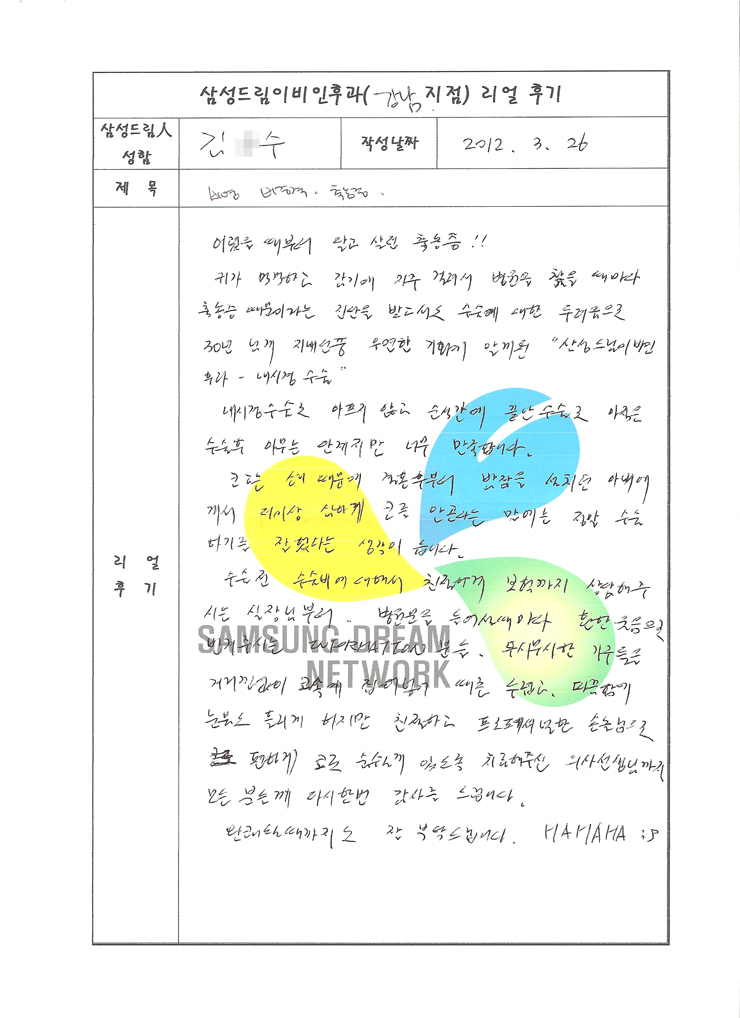 삼성드림이비인후과(강남 지점) 리얼 후기
삼성드림人 성함
김 수
작성날짜
2012. 3. 26
제 목
비염 축농증.
리얼 후기
어렸을 때부터 앓고 살던 축농증!!
귀가 먹먹하고 감기에 자주 걸려서 병원을 찾을 때마다
축농증 때문이라는 진단을 받으면서도 수술에 대한 두려움으로
30년 넘게 지내던중 우연한 기회에 알게된 "삼성드림이비인
후과 - 내시경 수술"
내시경수술로 아프지 않고 순식간에 끝난 수술로 아직은
수술후 아무는 단계지만 너무 만족합니다.
코고는 소리 때문에 결혼후부터 밤잠을 설치던 아내에
게서 더이상 심하게 코를 안곤다는 말에는 정말 수술
하기를 잘했다는 생각이 듭니다.
수술전 수술비에 대해서 친절하게 보험까지 상담해주
시는 실장님부터. 병원문을 들어설때마다 환한 웃음으로
반겨주시는 분들. 무시무시한 기구들을
거리낌없이 콧속에 집어넣기 때문 두렵고, 따끔함에
눈물도 흘리게 하지만 친절하고 프로페셔널한 손놀림으로
편하게 코로 숨쉴수 있도록 치료해주신 의사선생님까지
모든 분들께 다시한번 감사를 드립니다.
완쾌될때까지도 잘 부탁드립니다. HAHAHA :P
SAMSUNG DREAM
NETWORK